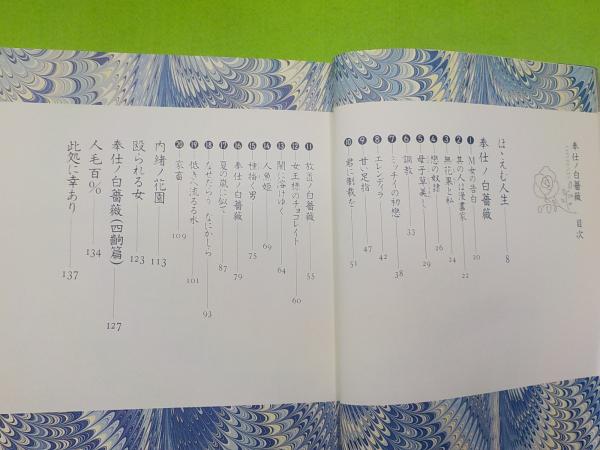 奉仕ノ白薔薇
目次
ほゝえむ人生 8
奉仕ノ白薔薇
❶ M女の告白 10
❷ 其の人は漫畫家 22
❸ 無花果と私 24
❹ 戀の奴隷 26
❺ 母子草美し 29
❻ 調教 33
❼ ミッチイの初戀 38
❽ エレンディラ 42
❾ 甘い足指 47
❿ 君に制裁を 51
⓫ 放盲ノ白薔薇 55
⓬ 女王様のチョコレイト 60
⓭ 闇に溶けゆく 64
⓮ 人魚姫 69
⓯ 種撈く男 75
⓰ 奉仕ノ白薔薇 79
⓱ 夏の嵐に似て 87
⓲ なぜだらう なにかしら 93
⓳ 低きに流るる水 101
⓴ 家畜 109
内緒ノ花園 113
殴られる女 123
奉仕ノ白薔薇(四齣篇) 127
人毛百% 134
此処に幸あり 137